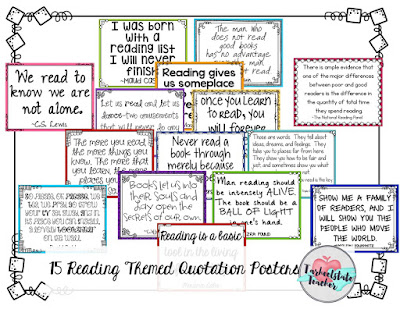 I was born
with a
reading list
I will never
finish.
The man who
does not read
good books
has no advantage
We read to
know we are
not alone.
-C.S. Lewis
Reading gives
us someplace
There is ample evidence that
one of the major differences
between poor and good
readers is the difference in
the quantity of total time
they spend reading.
-The National Reading Panel
Let us read and let us
dance-two amusements
that will never do any
once you learn
to read, you
will forever
The more you read,
the more things you
know. The more that
you learn, the more
Never read a
book through
merely because
These are words. They tell about
ideas, dreams, and feelings. They
take you to places far from here.
They show you how to be fair and
just, and sometimes show you what
Books let us into
their souls and
lay open the
secrets of our own.
Man reading should
be intensely ALIVE.
The book should be a
BALL OF LIGHT
in one's hand.
SHOW ME A FAMILY
OF READERS, AND I
WILL SHOW YOU THE
PEOPLE WHO MOVE
THE WORLD.
Reading is a basic
tool in the living
15 Reading Themed Quotation Posters
Tarheelstate
Teacher